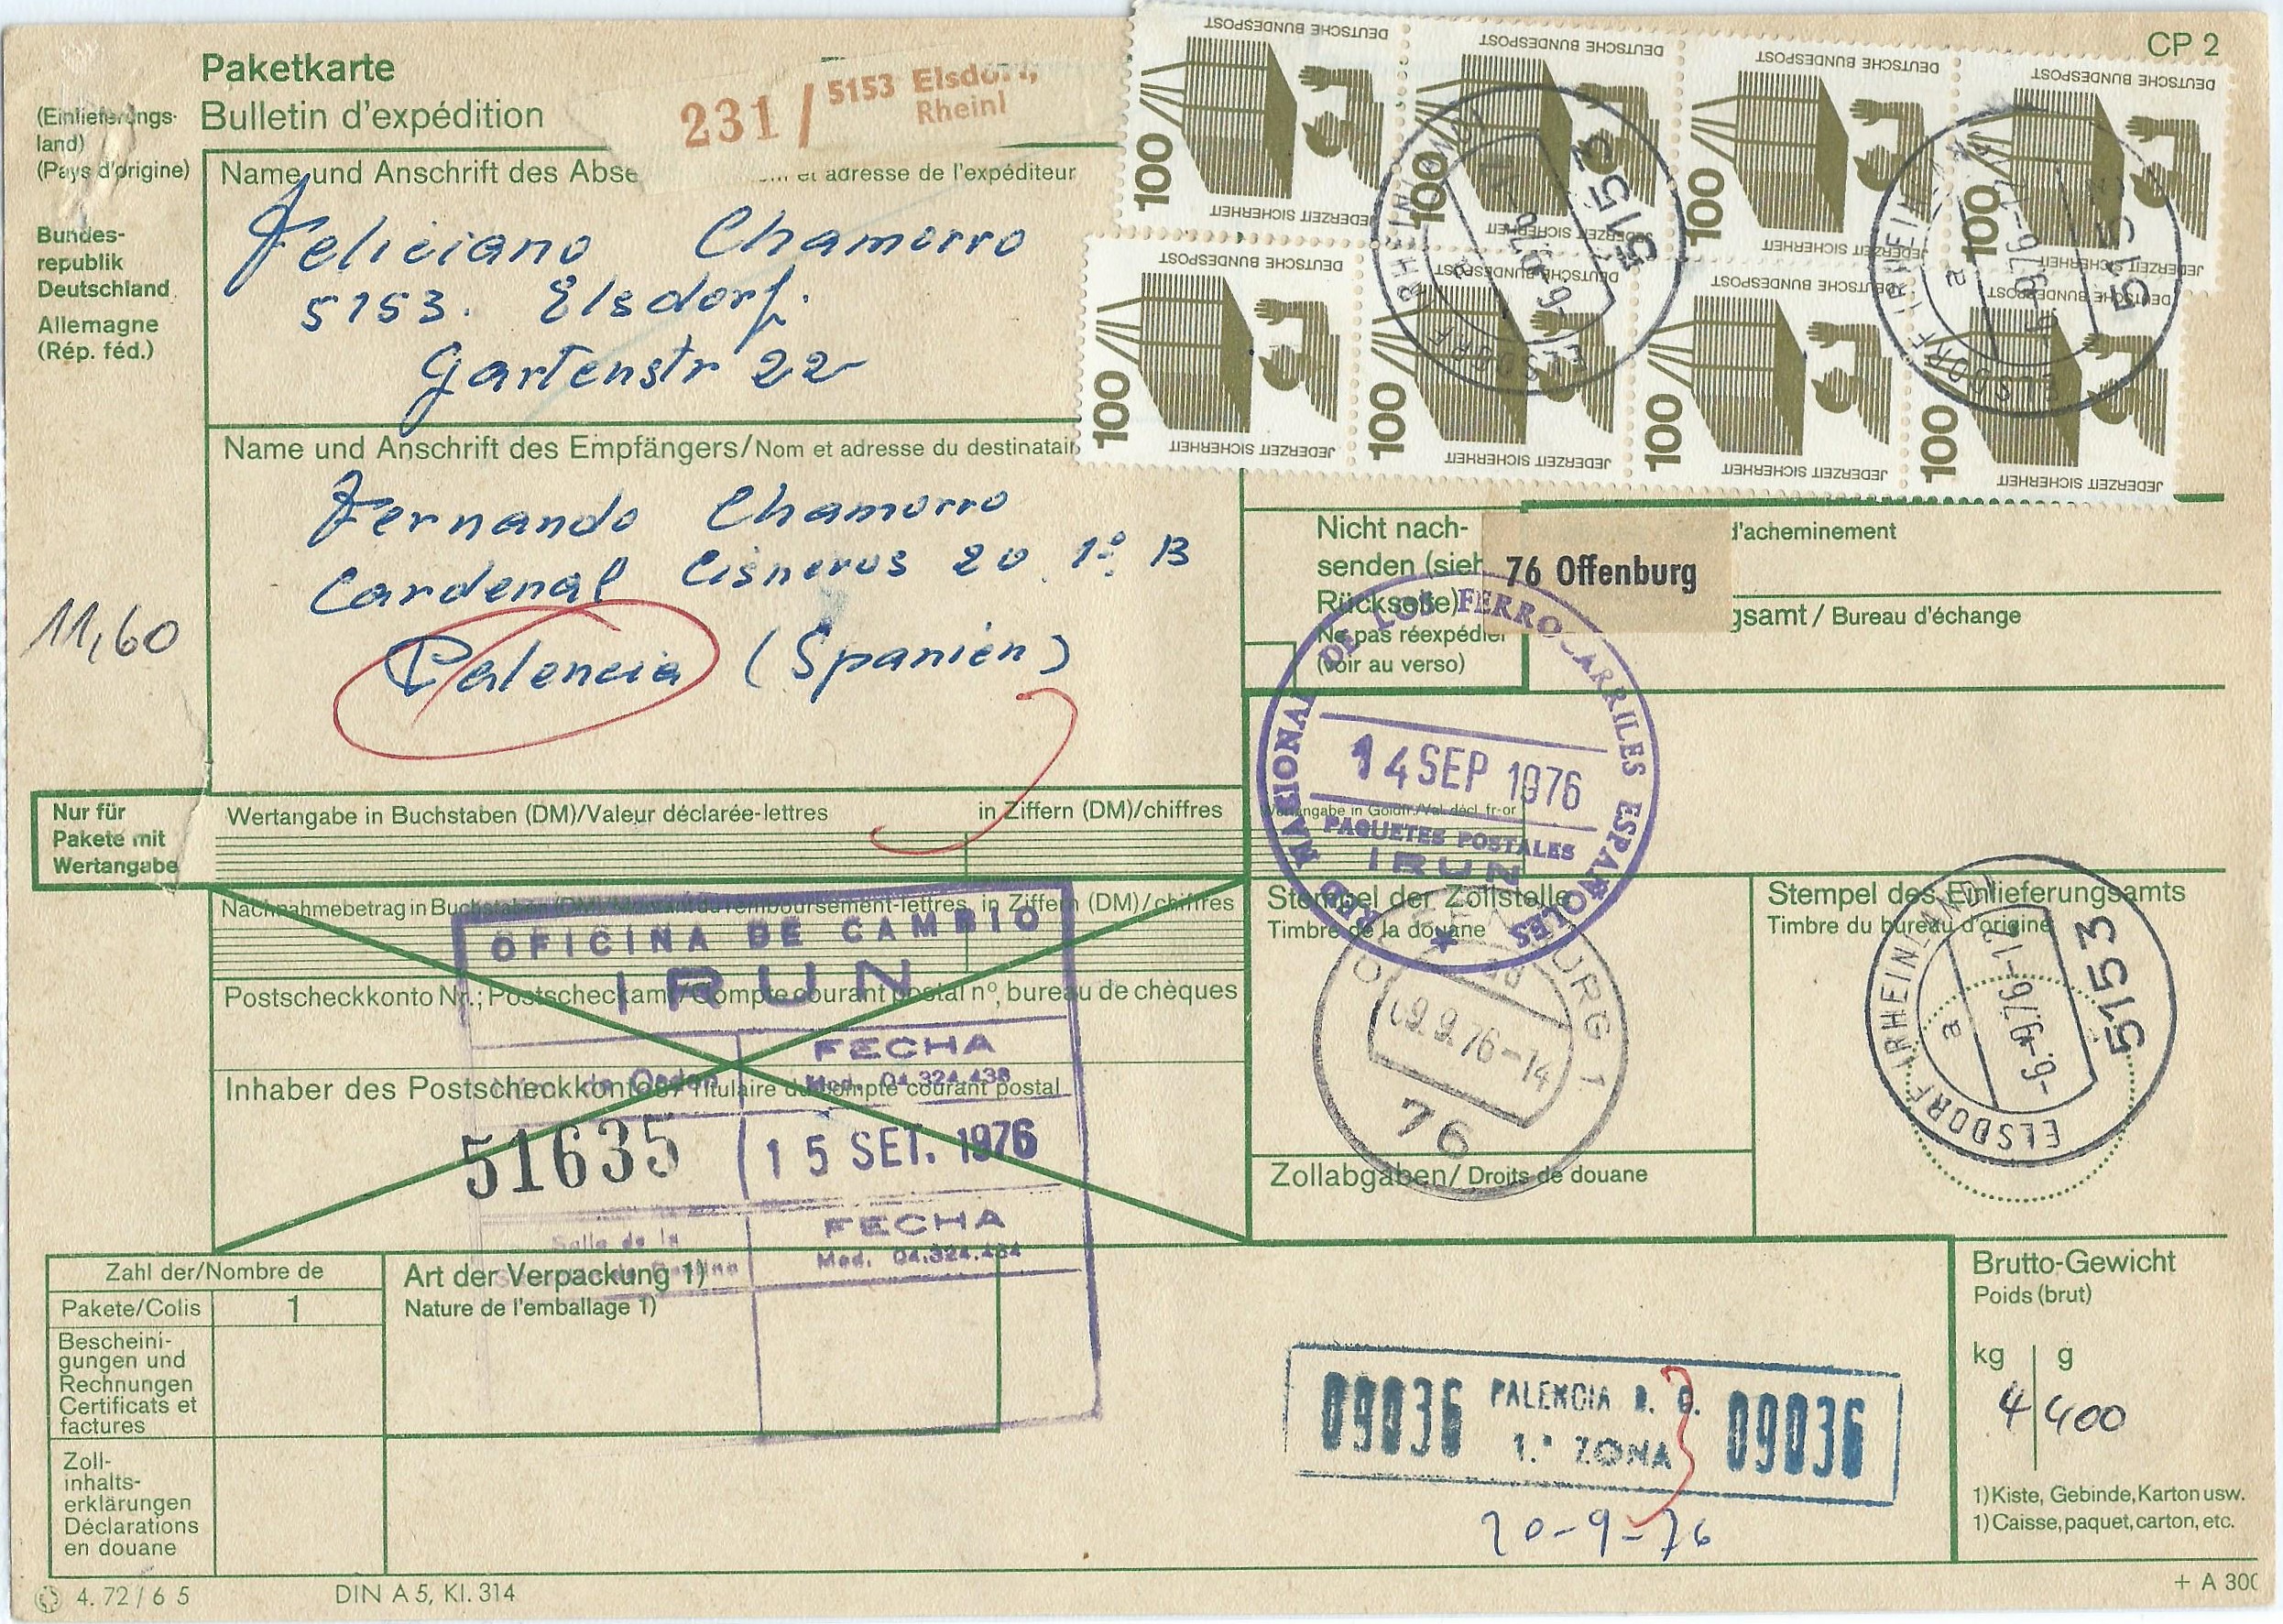 CP 2
Paketkarte
Bulletin d'expédition
231 / 5153 Elsdorf,
Rheinl
(Einlieferungs-
land)
(Pays d'origine)
Bundes-
republik
Deutschland
Allemagne
(Rép. féd.)
Name und Anschrift des Abse
et adresse de l'expéditeur
Feliciano Chamorro
5153. Elsdorf.
Gartenstr 22
DEUTSCHE BUNDESPOST
100
JEDERZEIT SICHERHEIT
DEUTSCHE BUNDESPOST
100
JEDERZEIT SICHERHEIT
DEUTSCHE BUNDESPOST
100
JEDERZEIT SICHERHEIT
DEUTSCHE BUNDESPOST
100
JEDERZEIT SICHERHEIT
DEUTSCHE BUNDESPOST
100
JEDERZEIT SICHERHEIT
DEUTSCHE BUNDESPOST
100
JEDERZEIT SICHERHEIT
DEUTSCHE BUNDESPOST
100
JEDERZEIT SICHERHEIT
DEUTSCHE BUNDESPOST
100
JEDERZEIT SICHERHEIT
5153
ELSDORF (RHEINL)
a
5153
ELSDORF (RHEINL)
a
Name und Anschrift des Empfängers/Nom et adresse du destinatair
Fernando Chamorro
Cardenal Cisneros 20 1º B
Palencia (Spanien)
11,60
Nicht nach-
senden (sieh
Rückseite)
Ne pas réexpédier
(voir au verso)
d'acheminement
76 Offenburg
gsamt / Bureau d'échange
RED NACIONAL DE LOS FERROCARRILES ESPAÑOLES
14 SEP 1976
PAQUETES POSTALES
IRUN
Nur für
Pakete mit
Wertangabe
Wertangabe in Buchstaben (DM)/Valeur déclarée-lettres
in Ziffern (DM)/chiffres
Wertangabe in Goldfr./Val. décl. fr-or
Nachnahmebetrag in Buchstaben (DM)/Montant du remboursement-lettres
in Ziffern (DM)/chiffres
Postscheckkonto Nr.; Postscheckamt/Compte courant postal nº, bureau de chèques
Inhaber des Postscheckkontos/Titulaire du compte courant postal
OFICINA DE CAMBIO
IRUN
FECHA
Mod. 04.324.433
51635
15 SET. 1976
FECHA
Mod. 04.324.434
Stempel der Zollstelle
Timbre de la douane
OFFENBURG 1
76
Zollabgaben/Droits de douane
Stempel des Einlieferungsamts
Timbre du bureau d'origine
5153
-6.-9.76-12
a
ELSDORF (RHEINL)
Zahl der/Nombre de
Pakete/Colis
1
Bescheini-
gungen und
Rechnungen
Certificats et
factures
Zoll-
inhalts-
erklärungen
Déclarations
en douane
Art der Verpackung 1)
Nature de l'emballage 1)
Brutto-Gewicht
Poids (brut)
kg g
4 400
09036 PALENCIA 09036
1.ª ZONA
20-9-76
1) Kiste, Gebinde, Karton usw.
1) Caisse, paquet, carton, etc.
4. 72 / 6 5
DIN A 5, Kl. 314
+ A 300